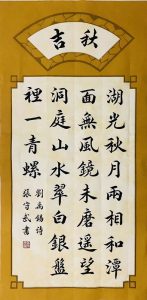 秋吉
湖光秋月兩相和潭
面無風鏡未磨遥望
洞庭山水翠白銀盤
裡一青螺
劉禹錫诗
張守武書